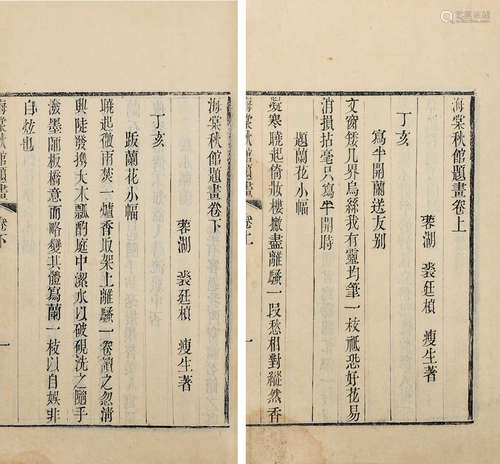 海棠秋館題畫卷上
蓉湖 裘廷楨 瘦生著
丁亥
寫半開蘭送友別
文窗矮几界烏絲我有靈均筆一枝祇恐好花易
消損拈毫只寫半開時
題蘭花小幅
凝寒曉起倚妝樓
盡離騷一段愁相對縱然香
海棠秋館題畫 卷上 一
海棠秋館題畫卷下
蓉湖 裘廷楨 瘦生著
丁亥
跋蘭花小幅
曉起微雨茶一爐香取架上離騷一卷讀之忽清
興陡發攜大木瓢酌庭中潔水以破硯洗之隨手
潑墨師板橋意而略變其體寫蘭一枝以自娛非
自炫也
海棠秋館題畫 卷下 一